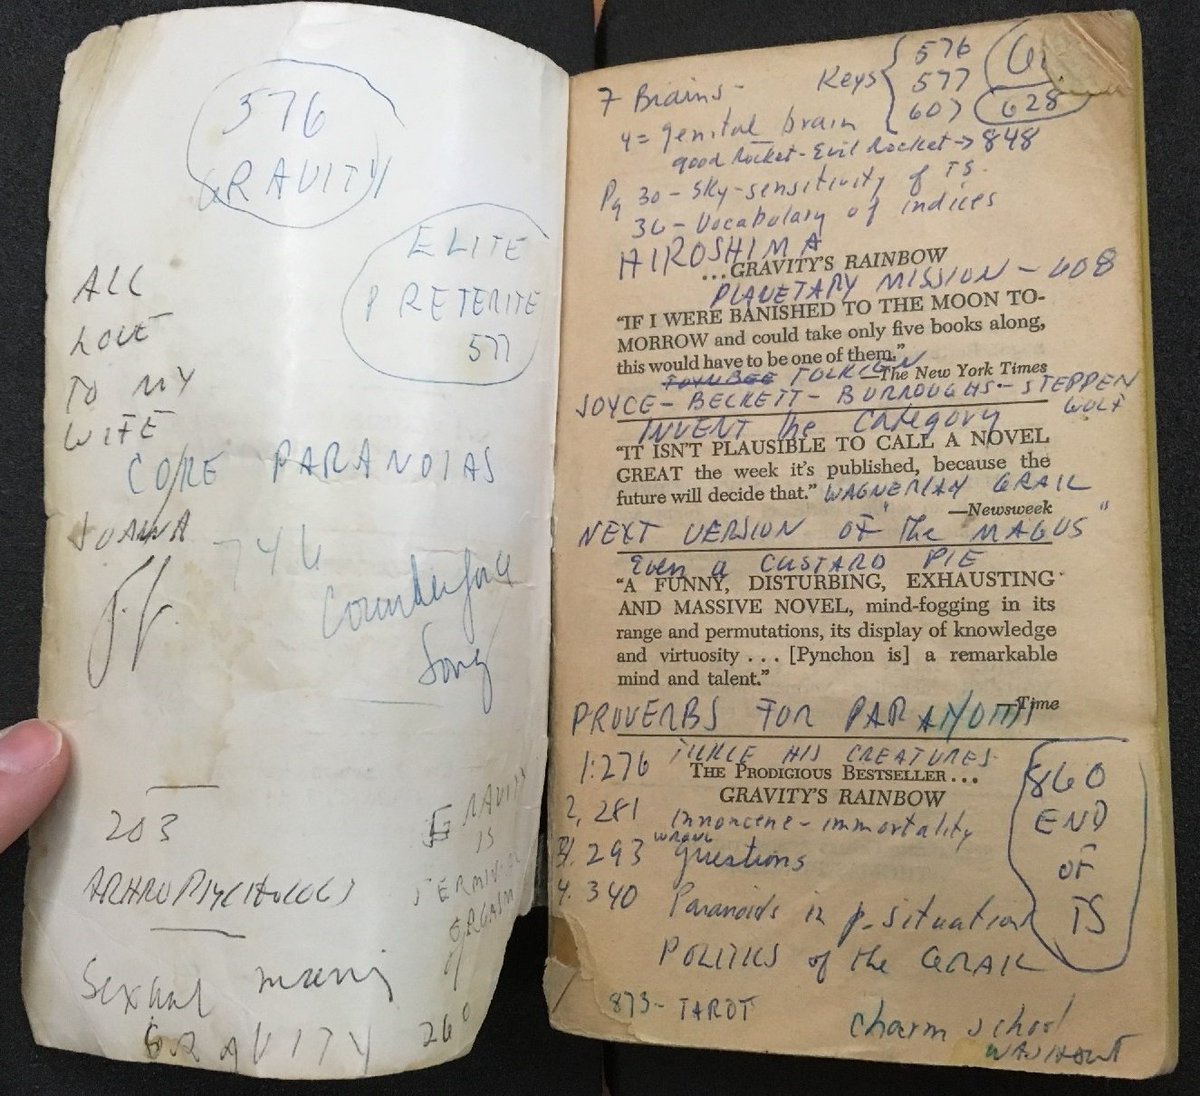 576
GRAVITY
ELITE
PRETERITE
577
ALL
LOVE
TO MY
WIFE
CORE PARANOIAS
JOANNA
746
Counterforce
Song
203
Sexual
GRAVITY
GRAVITY
IS
TERMINAL
ORGASM
of
260
7 Brains -
Keys { 576
577
607
628
4 = genital brain
good Rocket - Evil Rocket → 848
Pg 30 - Sky-sensitivity of TS.
36 - Vocabulary of indices
HIROSHIMA
...GRAVITY'S RAINBOW
PLANETARY MISSION - 608
"IF I WERE BANISHED TO THE MOON TO-
MORROW and could take only five books along,
this would have to be one of them."
TOLKIEN
—The New York Times
JOYCE - BECKETT - BURROUGHS - STEPPEN
WOLF
INVENT the category
"IT ISN'T PLAUSIBLE TO CALL A NOVEL
GREAT the week it's published, because the
future will decide that." WAGNERIAN GRAIL
—Newsweek
NEXT VERSION OF "the MAGUS"
Even a CUSTARD PIE
"A FUNNY, DISTURBING, EXHAUSTING
AND MASSIVE NOVEL, mind-fogging in its
range and permutations, its display of knowledge
and virtuosity . . . [Pynchon is] a remarkable
mind and talent."
—Time
PROVERBS FOR PARANOIDS
1: 276 TICKLE HIS CREATURES.
THE PRODIGIOUS BESTSELLER...
GRAVITY'S RAINBOW
2, 281 innoncene - immortality
3. 293 wrong questions
4. 340 Paranoids in p. situation
860
END
OF
TS
POLITICS of the GRAIL
873 - TAROT
charm school
WASHOUT